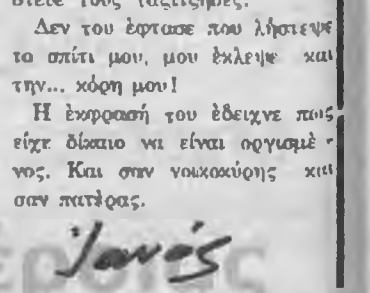 τους ταξιτζήδες.
Δεν του έφτασε που λήστεψε
το σπίτι μου, μου έκλεψε και
την... κόρη μου!
Η έκφρασή του έδειχνε πως
είχε δίκαιο να είναι οργισμέ-
νος. Και σαν νοικοκύρης και
σαν πατέρας.